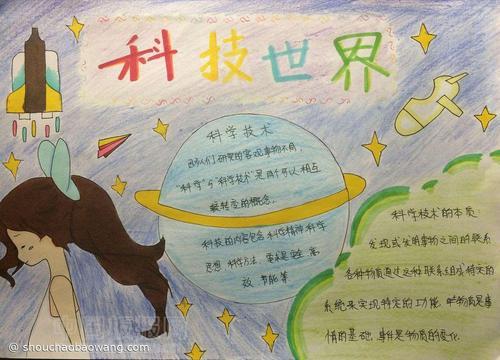 科技世界
科学技术
因人们研究的客观事物不同，
"科学"与"科学技术"是两个可以相互
转变的概念。
科技的内容包含科技精神科学
思想 科学方法、
节能等
科学技术的本质：
发现或发明事物之间的联系
各种物质通过这种联系组成特定的
系统来实现特定的功能。
的基础，事是物质的变化。
@ shouchaobaowang.com